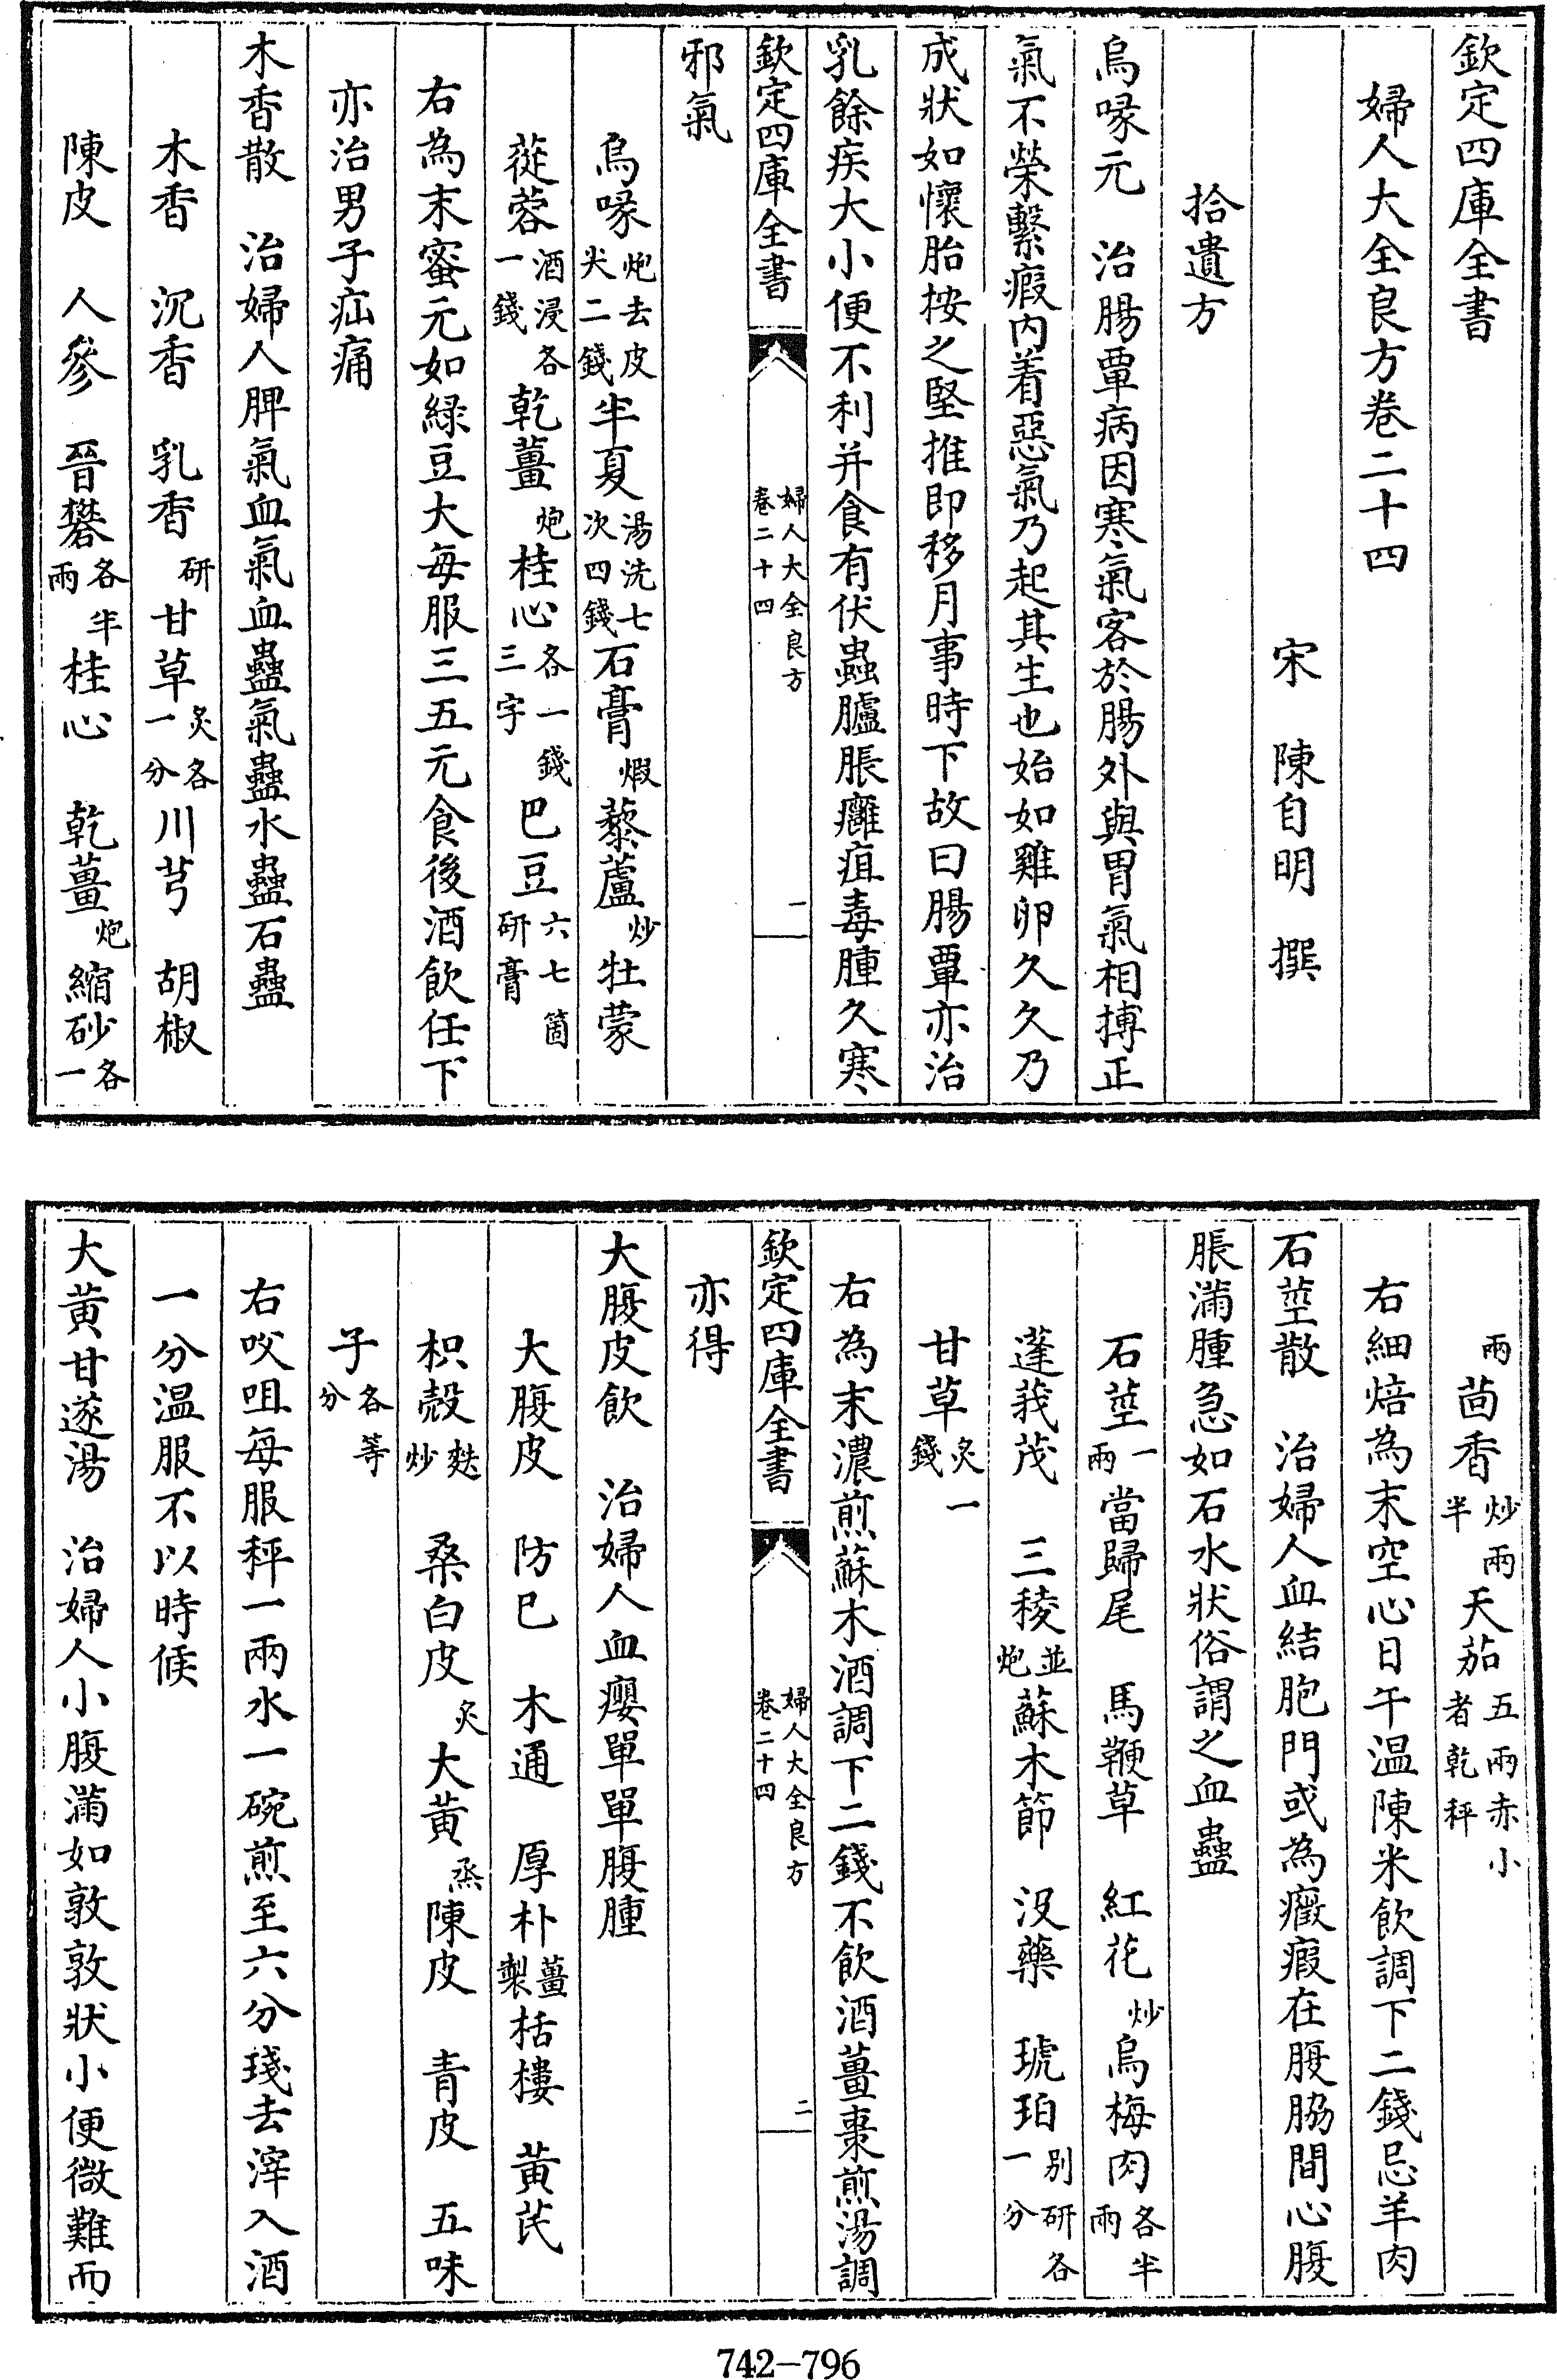 欽定四庫全書
婦人大全良方卷二十四
宋 陳自明 撰
拾遺方
烏喙元 治腸覃病因寒氣客於腸外與胃氣相搏正
氣不榮繫瘕内着惡氣乃起其生也始如雞卵久久乃
成狀如懷胎桉之堅推即移月事時下故曰腸覃亦治
乳餘疾大小便不利并食有伏蟲臚脹癰疽毒腫久寒
欽定四庫全書 婦人大全良方 卷二十四 一
邪氣
烏喙炮去皮尖二錢半夏湯洗七次四錢石膏煆藜蘆炒牡蒙
蓯蓉酒浸各一錢乾薑炮桂心各一錢三字巴豆六七箇研膏
右為末蜜元如綠豆大每服三五元食後酒飲任下
亦治男子疝痛
木香散 治婦人脾氣血氣血蠱氣蠱水蠱石蠱
木香 沉香 乳香研甘草炙各一分川芎 胡椒
陳皮 人參 晉礬各半兩桂心 乾薑炮縮砂各一
兩茴香炒兩半天茄五兩赤小者乾秤
右細焙為末空心日午温陳米飲調下二錢忌羊肉
石莖散 治婦人血結胞門或為癥瘕在腹脇間心腹
脹滿腫急如石水狀俗謂之血蠱
石莖一兩當歸尾 馬鞭草 紅花炒烏梅肉各半兩
蓬莪茂 三稜並炮蘇木節 没藥 琥珀别研各一分
甘草炙一錢
右為末濃煎蘇木酒調下二錢不飲酒薑棗煎湯調
欽定四庫全書 婦人大全良方 卷二十四 二
亦得
大腹皮飲 治婦人血癭單單腹腫
大腹皮 防巳 木通 厚朴薑製栝樓 黃芪
枳殼麩炒 桑白皮炙大黃烝陳皮 青皮 五味
子各等分
右㕮咀每服秤一兩水一碗煎至六分琖去滓入酒
一分温服不以時候
大黃甘遂湯 治婦人小腹滿如敦敦狀小便微難而
742-796